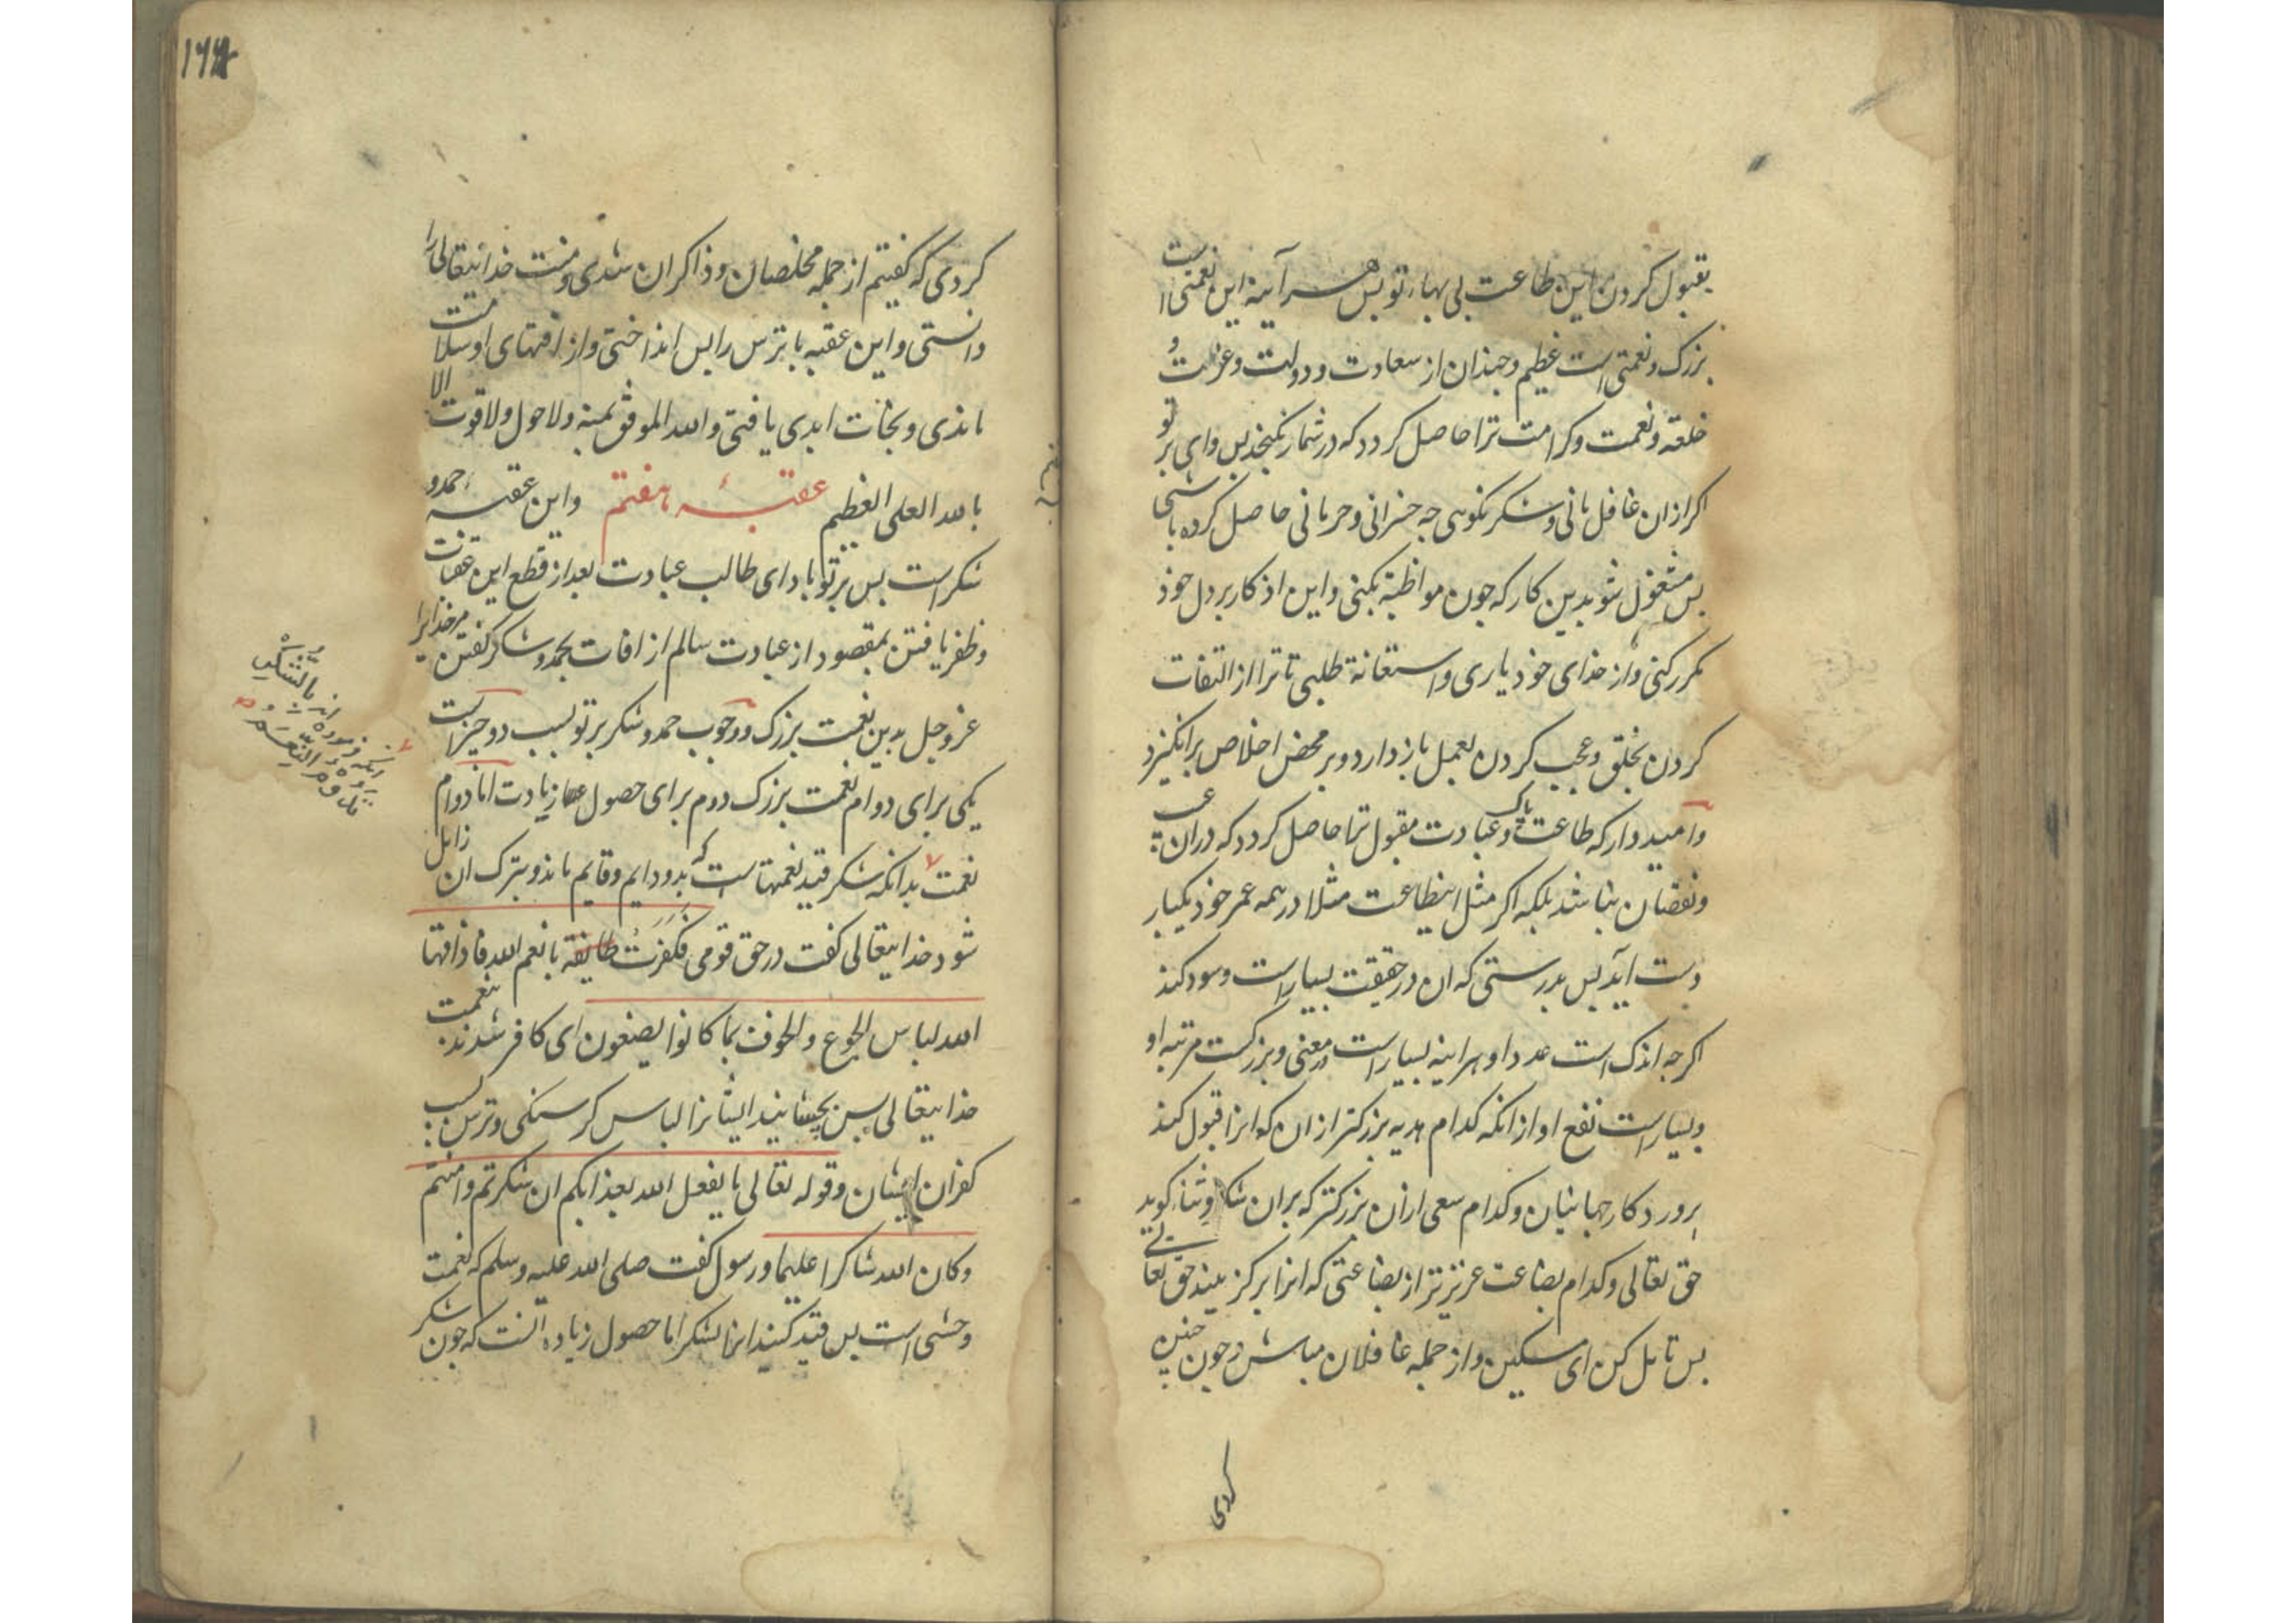 بقبول کردن این طاعت بی بهاء تو پس هر آینه این نعمتی است
بزرک و نعمتی است عظیم و چندان از سعادت و دولت و عزت و
خلعة و نعمت و کرامت ترا حاصل کردد که در شمار نکنجد پس وای بر تو
اکر ازان غافل مانی و شکر نکوئی چه خسرانی و حرمانی حاصل کرده باشی
پس مشغول شو بدین کار که چون مواظبة بکنی و این اذکار بر دل خوذ
مکرر کنی و از خذای خوذ یاری و استعانة طلبی تا ترا از التفات
کردن بخلق و عجب کردن بعمل باز دارد و بر محض اخلاص برانکیزد
وامید دار که طاعت پاک و عبادت مقبول ترا حاصل کردد که دران عیب
و نقصان نباشد بلکه اکر مثل اینطاعت مثلا در همه عمر خوذ یکبار
دست آید پس بدرستی که ان در حقیقت بسیار است و سود کند
اکرچه اندک است عدد او هراینه بسیار است در معنی و بزرکست مرتبه او
و بسیار است نفع او از انکه کدام هدیه بزرکتر از ان که انرا قبول کند
پروردکار جهانیان و کدام سعی ازان بزرکتر که بران شکر و ثنا کوید
حق تعالی و کدام بضاعت عزیزتر از بضاعتی که انرا برکزیند حق تعالی
پس تامل کن ای مسکین و از جمله غافلان مباش و چون چنین
کردی
۱۶۴
کردی که کفتیم از جمله مخلصان و ذاکران شدی و منت خدایتعالی را
دانستی و این عقبه با ترس را پس انداختی و از افتهای او سلامت
ماندی و نجات ابدی یافتی والله الموفق بمنه ولا حول ولا قوت الا
بالله العلی العظیم عقبهٔ هفتم و این عقبه حمد و
شکر است پس بر تو باد ای طالب عبادت بعد از قطع این عقبات
و ظفر یافتن بمقصود از عبادت سالم از افات بحمد و شکر کفتن مر خدایرا
عز و جل بدین نعمت بزرک و وجوب حمد و شکر بر تو بسبب دو چیز است
یکی برای دوام نعمت بزرک دوم برای حصول زیادت اما دوام
نعمت بدانکه شکر قید نعمتها است که بدو دایم و قایم ماند و بترک ان زایل
شود خدایتعالی کفت در حق قومی فکفرت طایفة بانعم الله فاذاقها
الله لباس الجوع والخوف بما کانوا یصنعون ای کافر شدند بنعمت
خدایتعالی پس بچشانید ایشانرا لباس کرسنکی و ترس بسبب
کفران ایشان و قوله تعالی ما یفعل الله بعذابکم ان شکرتم وامنتم
وکان الله شاکرا علیما و رسول کفت صلی الله علیه وسلم که نعمت
وحشی است پس قید کنید انرا بشکر اما حصول زیاده انست که چون شکر